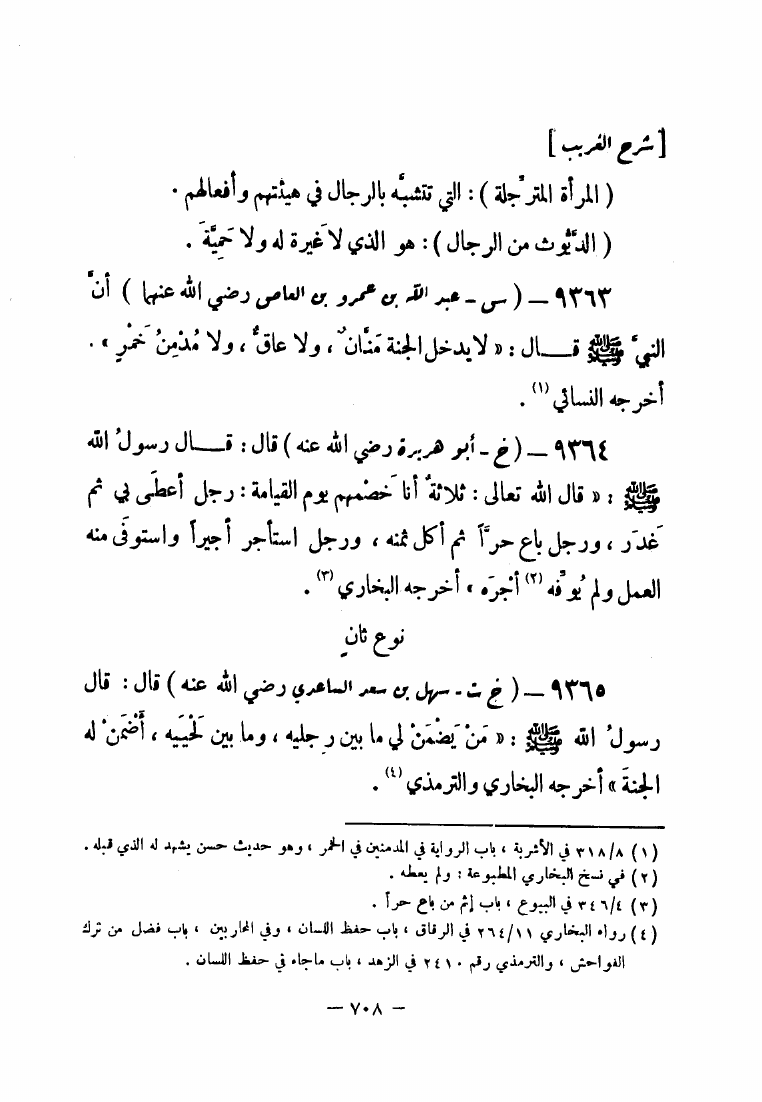 [ شرح الغريب ]
( المرأة المترَجِّلة ) : التي تتشبَّه بالرجال في هيئتهم وأفعالهم .
( الدَّيُّوث من الرجال ) : هو الذي لا غَيرة له ولا حَمِيَّةَ .
٩٣٦٣ – ( س - عبد الله بن عمرو بن العاص رضي الله عنهما ) أنَّ
النبيَّ ﷺ قـــال : « لا يدخل الجنة مَنَّانٌ ، ولا عاقٌّ ، ولا مُدْمِنُ خَمْرٍ » .
أخرجه النسائي (١) .
٩٣٦٤ – ( خ - أبو هريرة رضي الله عنه ) قال : قـــال رسولُ الله
ﷺ : « قال الله تعالى : ثلاثةٌ أنا خَصْمُهم يوم القيامة : رجل أعطَى بي ثم
غَدَر ، ورجل باع حرَّاً ثم أكل ثمنه ، ورجل استأجر أجيراً واستوفَى منه
العمل ولم يُوَفِّه (٢) أجْرَه » أخرجه البخاري (٣) .
نوع ثانٍ
٩٣٦٥ – ( خ ت - سهل بن سعد الساعدي رضي الله عنه ) قال : قال
رسولُ الله ﷺ : « مَنْ يَضْمَنْ لي ما بين رِجليه ، وما بين لَحْيَيه ، أضْمَنْ له
الجنةَ » أخرجه البخاري والترمذي (٤) .
(١) ٣١٨/٨ في الأشربة ، باب الرواية في المدمنين في الخمر ، وهو حديث حسن يشهد له الذي قبله .
(٢) في نسخ البخاري المطبوعة : ولم يعطه .
(٣) ٣٤٦/٤ في البيوع ، باب إثم من باع حراً .
(٤) رواه البخاري ٢٦٤/١١ في الرقاق ، باب حفظ اللسان ، وفي المحاربين ، باب فضل من ترك
الفواحش ، والترمذي رقم ٢٤١٠ في الزهد ، باب ماجاء في حفظ اللسان .
– ٧٠٨ –